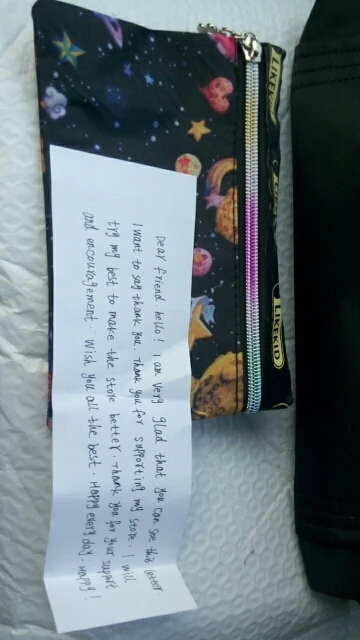 Dear friend hello! I am very glad that you can see this letter
I want to say thank you. Thank you for supporting my store. I will
try my best to make the store better. Thank you for your support
and encouragement. Wish you all the best. Happy every day. Happy!
LIKEKID